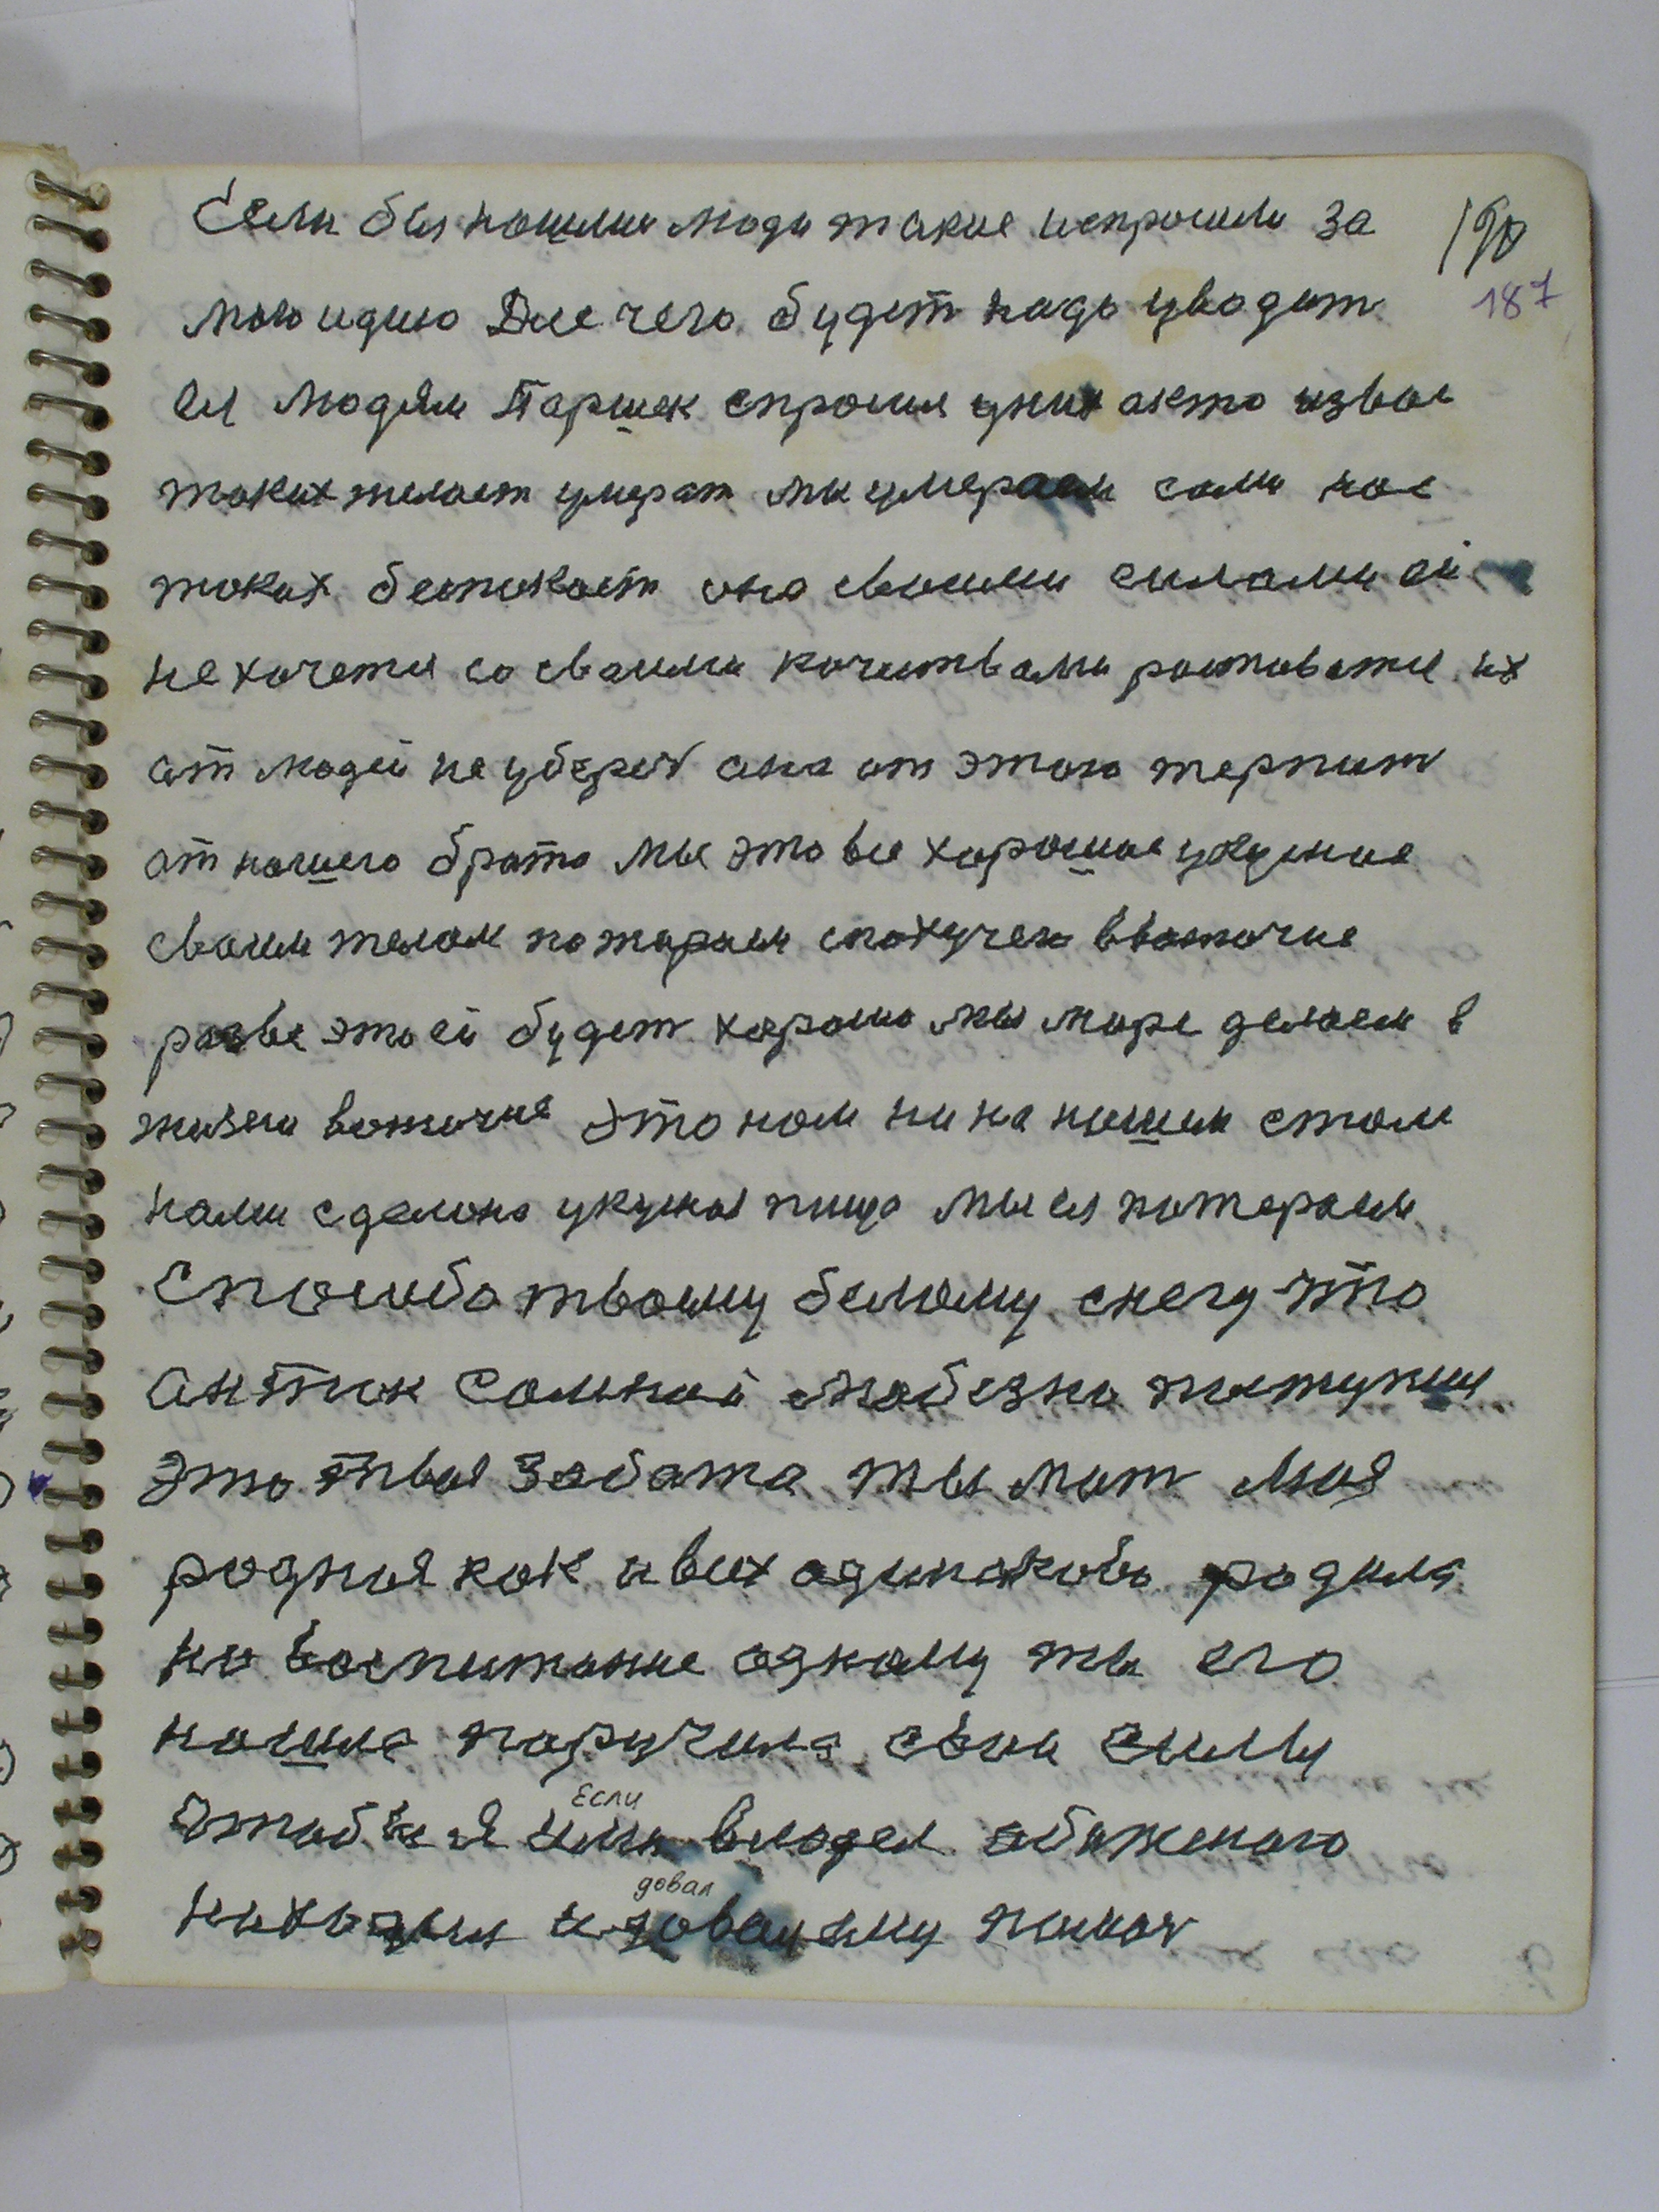 Если бы нашлис люди такие испросили за 190
мою идию Для чего будет надо уводит 187
ея людям Паршек спросил уних акто извас
таких желает умерат мы умераем сами нас
таких беспокоит она своими силами ей
не хочется со своими качествами роставатся их
от людей не уберет она от этого терпит
от нашего брата мы это все хорошое уедение
своим телом потираем спахучею в воточие
разве это ей будет хорошо мы море делаем в
жизни воточие Это нам ни на нашем столе
нами сделана укусная пища мы ея потераем
Спасибо твоему белому снегу что
Антик самной любезно поступил
Это твоя забота ты мат моя
родная как и всех одинакова родила
но воспитание одному ты его
нашла поручила свои силы
Если
Чтобы я владел обиженого
довал
находил и ему помоч